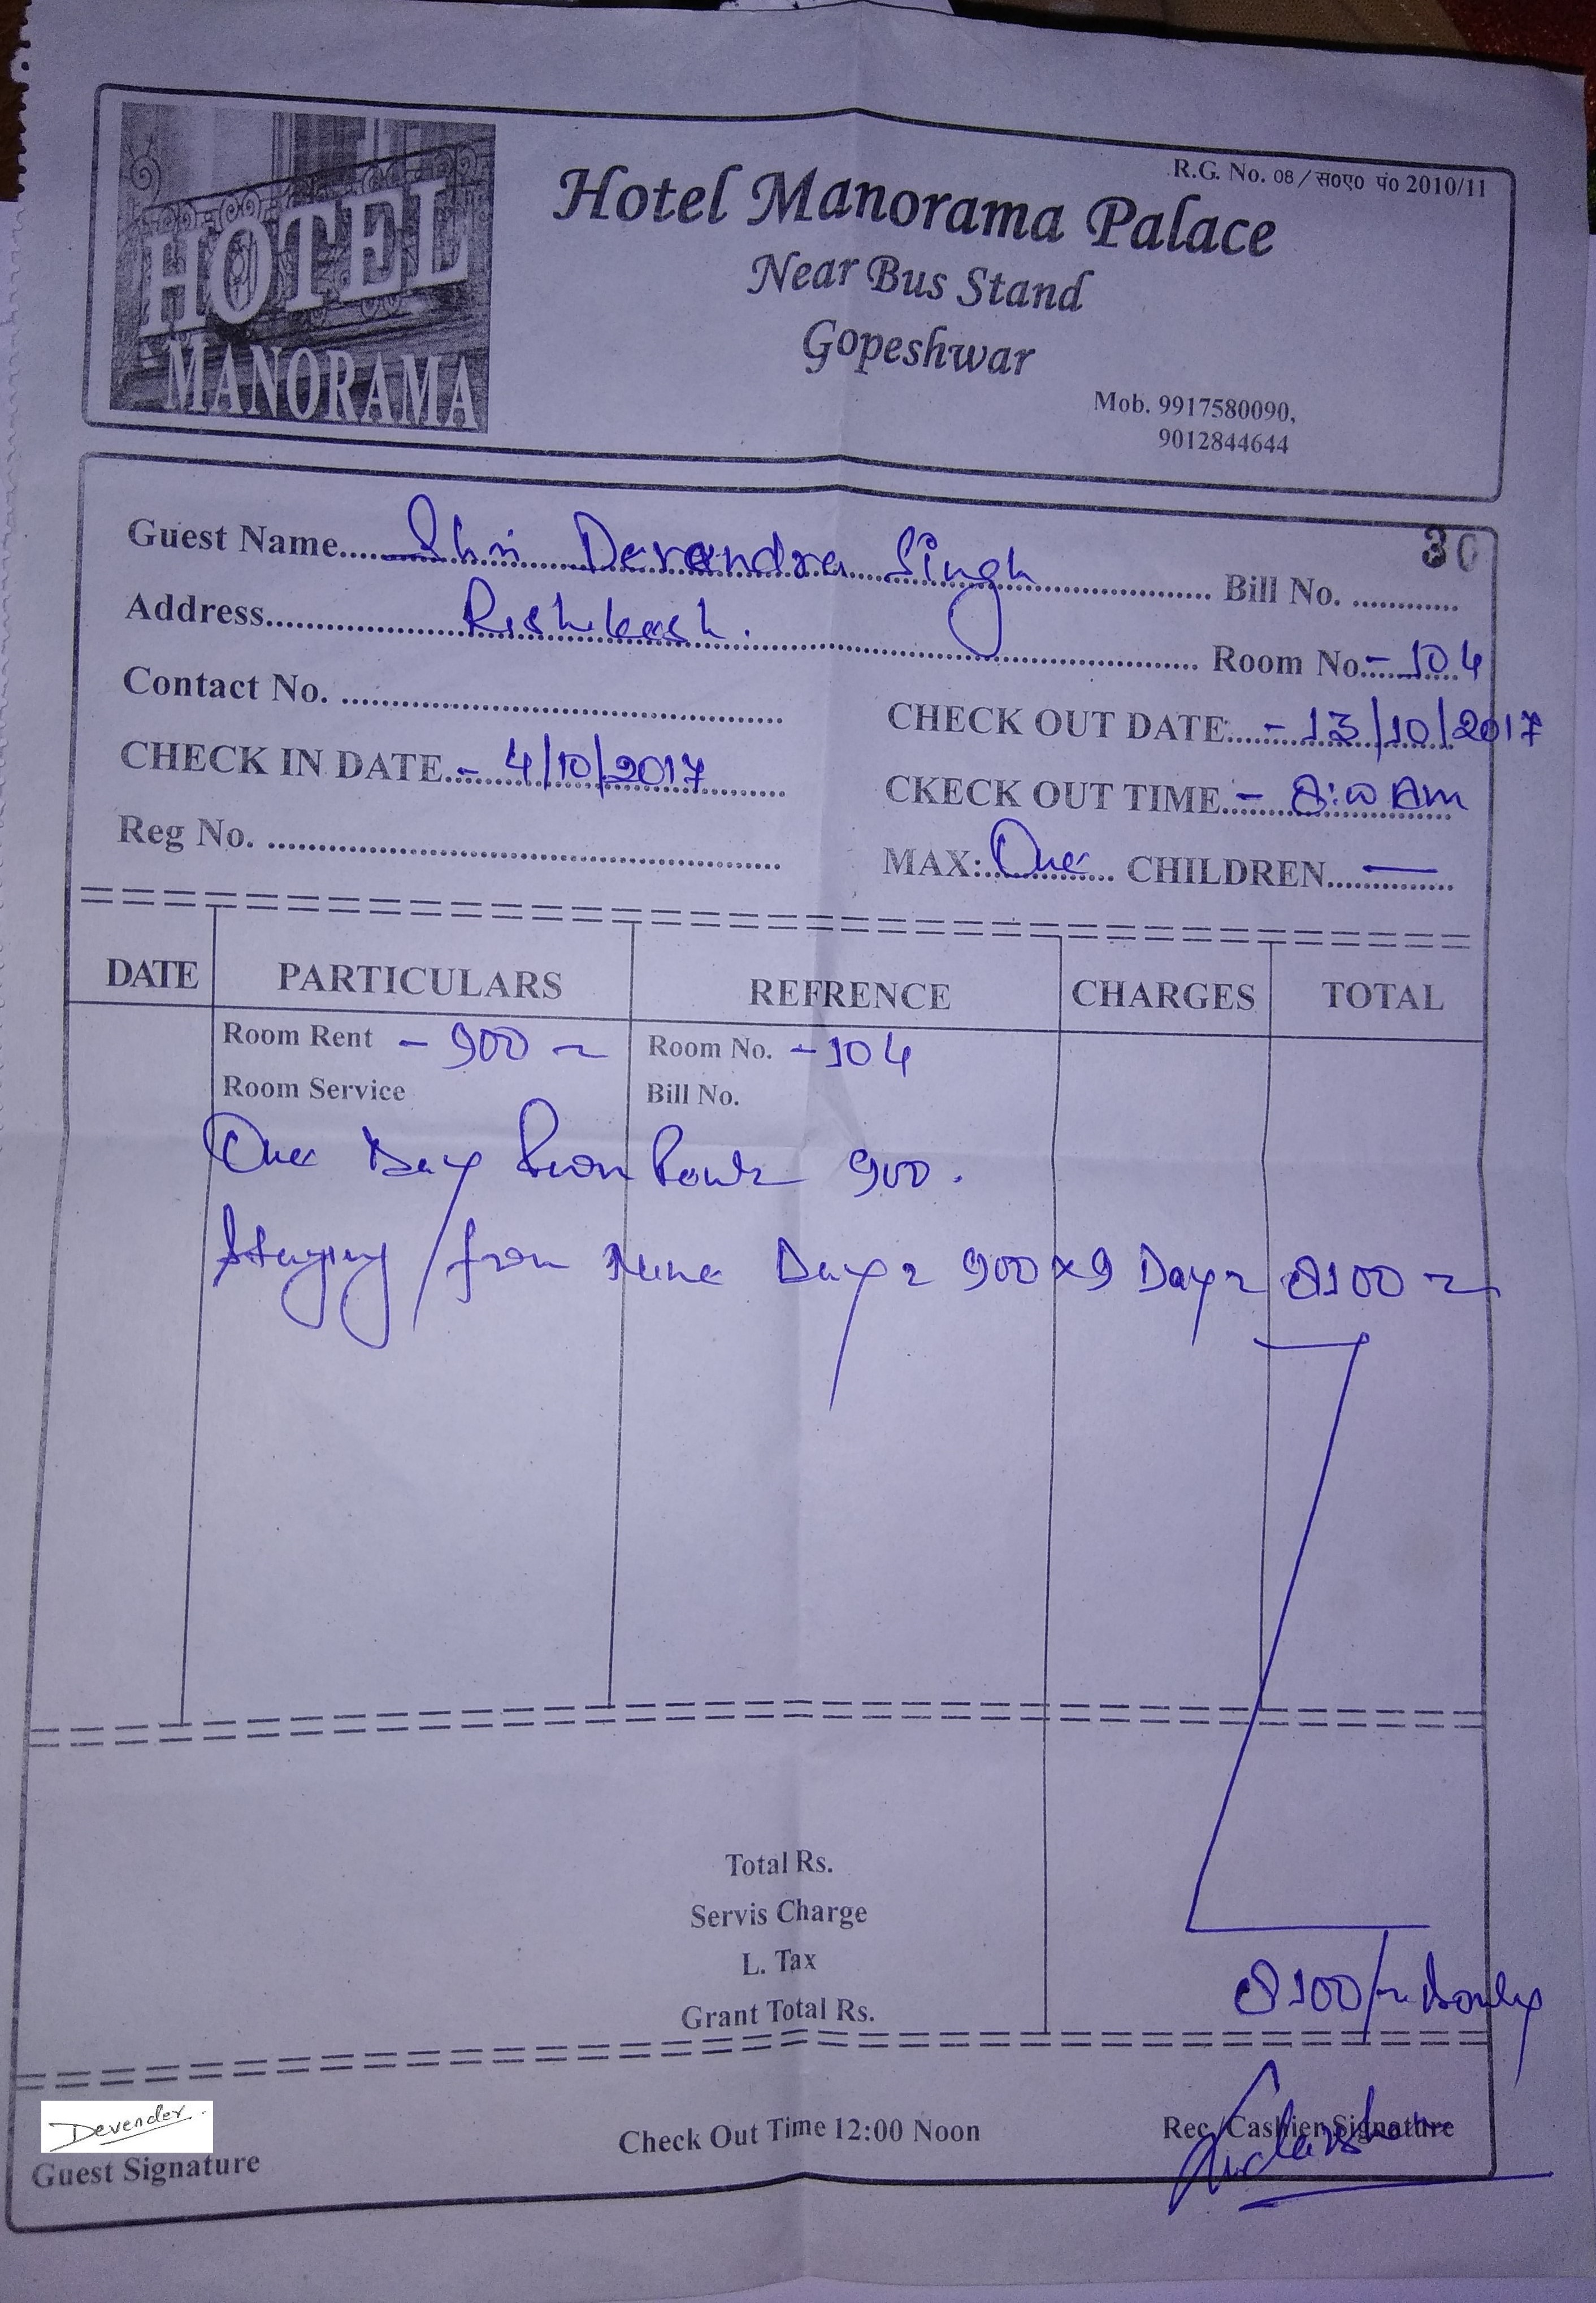 HOTEL
MANORAMA
R.G. No. 08/स०ए० पं० 2010/11
Hotel Manorama Palace
Near Bus Stand
Gopeshwar
Mob. 9917580090,
9012844644
30
Guest Name..... Shri Devendra Singh ..... Bill No. ............
Address..... Rishikesh. ..... Room No.- 104
Contact No. ..........
CHECK OUT DATE.... - 13/10/2017
CHECK IN DATE..- 4/10/2017
CKECK OUT TIME.- 8:00 Am
Reg No. ..........
MAX: One CHILDREN.... —
DATE PARTICULARS REFRENCE CHARGES TOTAL
Room Rent - 900 Room No. - 104
Room Service Bill No.
One Day Room 900.
Staying from Nine Days 900 x 9 Days 8100
Total Rs.
Servis Charge
L. Tax
Grant Total Rs. 8100/-
Devender.
Guest Signature
Check Out Time 12:00 Noon
Rec./Cashier Signature